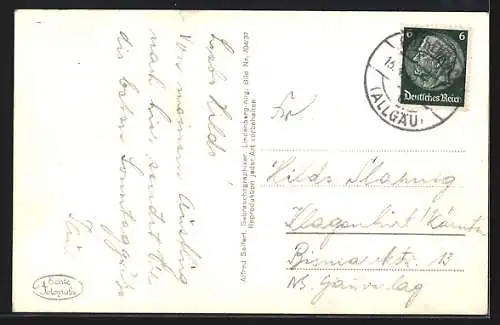 Liebe Hilde!
Von meinem Ausflug
nach hier sendet Dir
die besten Sonntagsgrüße
Alfred Seifert, Gebrauchsgraphiker, Lindenberg-Allg. Bild Nr.
Reproduktion jeder Art vorbehalten
Echte
Fotografie
6
6
Deutsches Reich
(ALLGÄU)
Frl.
Hilde
Klagenfurt/Kärnten
Bismarckstr. 13
NS. Gauverlag